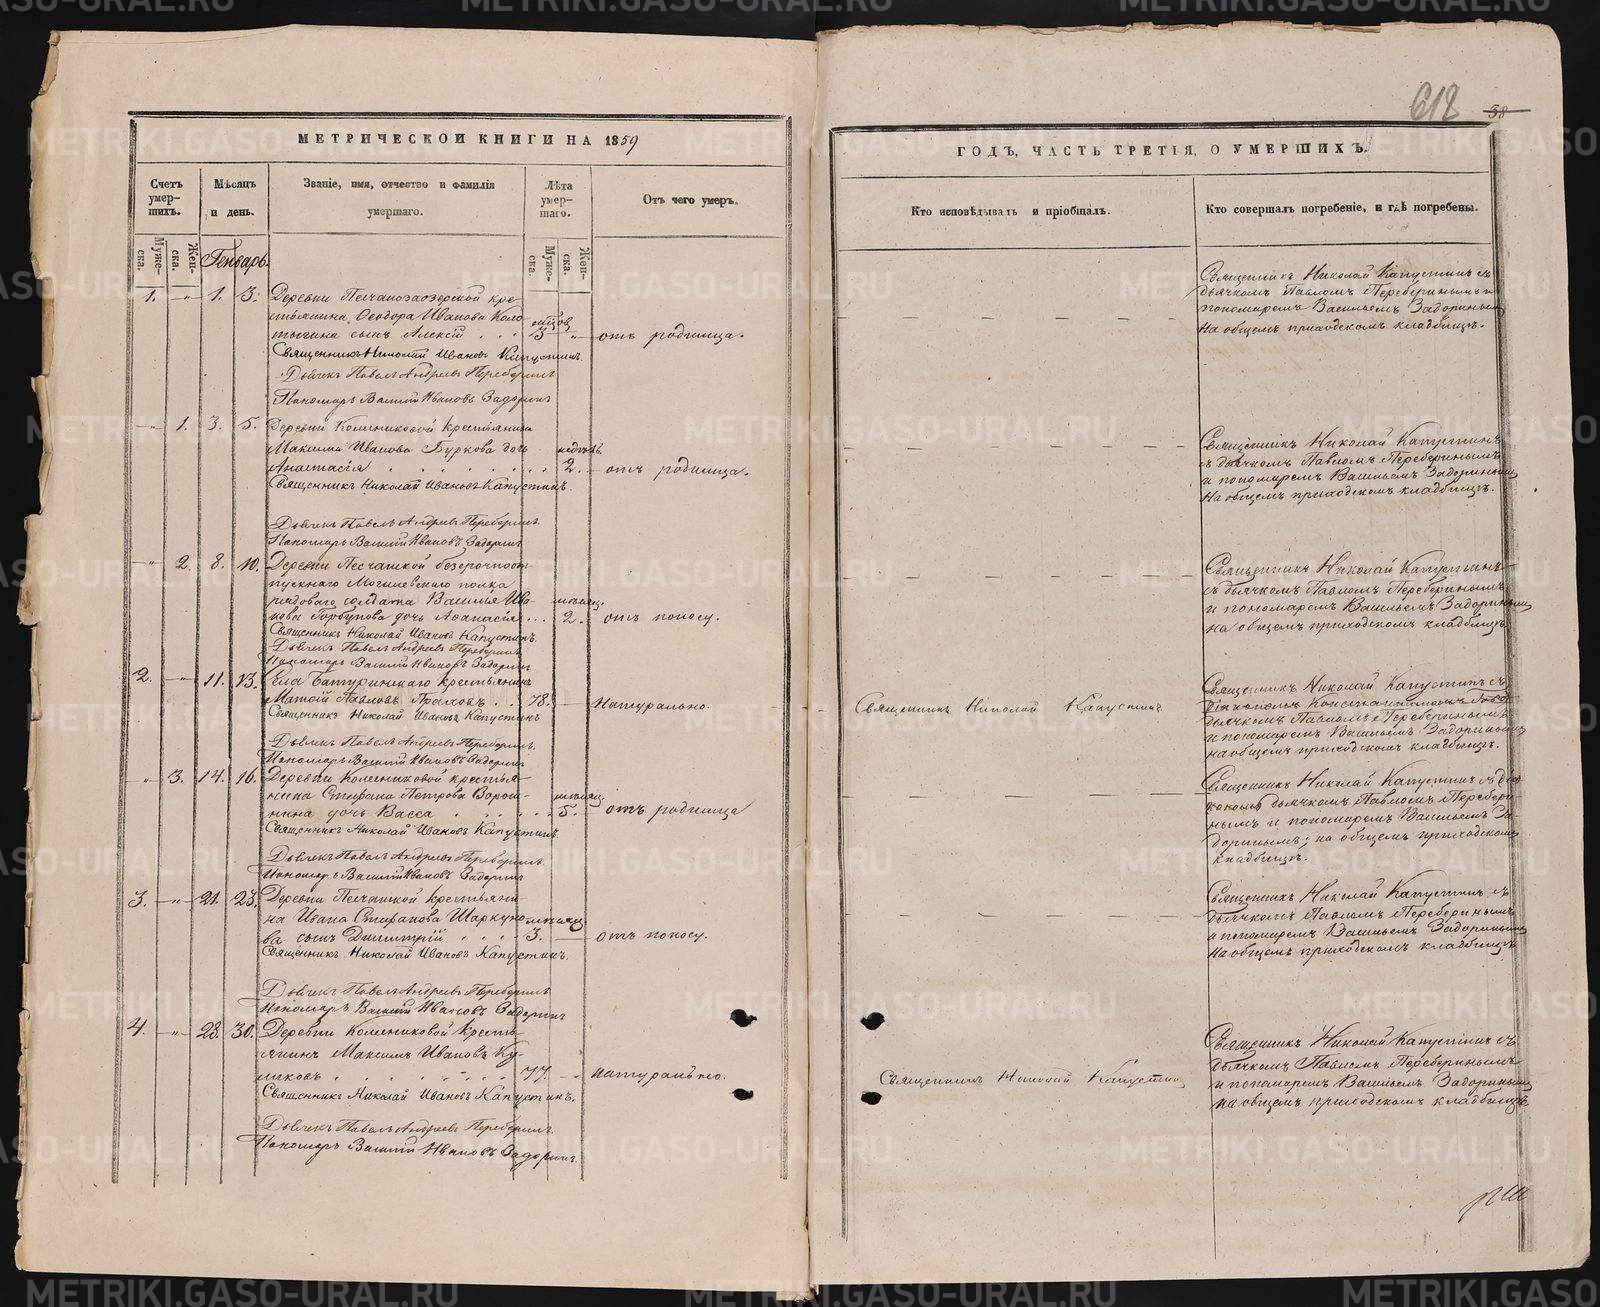 618 38
МЕТРИЧЕСКОЙ КНИГИ НА 1859
ГОДЪ, ЧАСТЬ ТРЕТІЯ, О УМЕРШИХЪ.
Счетъ умер-шихъ.
Мѣсяцъ и день.
Званіе, имя, отчество и фамилія
умершаго.
Лѣта умер-шаго.
Отъ чего умеръ.
Кто исповѣдывалъ и пріобщалъ.
Кто совершалъ погребеніе, и гдѣ погребены.
Муже-ска. Жен-ска.
Генварь.
Муже-ска. Жен-ска.
1. „ 1. 3. Деревни Песчаноозерской кре-
стьянина Ѳеодора Иванова Коло-
тыгина сынъ Алексій . . 3 „ отъ родимца.
Священникъ Николай Ивановъ Капустинъ
Дьячекъ Павелъ Андреевъ Переберинъ
Пономарь Василій Ивановъ Задоринъ
Священникъ Николай Капустинъ съ
дьячкомъ Павломъ Переберинымъ и
пономаремъ Васильемъ Задоринымъ
на общемъ приходскомъ кладбищѣ.
„ 1. 3. 5. Деревни Колениковой крестьянина
Максима Иванова Буркова дочь недѣль
Анастасія 2. отъ родимца.
Священникъ Николай Ивановъ Капустинъ.
Дьячекъ Павелъ Андреевъ Переберинъ
Пономарь Василій Ивановъ Задоринъ
Священникъ Николай Капустинъ
съ дьячкомъ Павломъ Переберинымъ
и пономаремъ Васильемъ Задоринымъ
на общемъ приходскомъ кладбищѣ.
„ 2. 8. 10. Деревни Песчаной безсрочноот-
пускнаго Могилевскаго полка
рядоваго солдата Василія Ива- мѣсяц.
нова Горбунова дочь Аѳанасія . . . 2. отъ поносу.
Священникъ Николай Ивановъ Капустинъ.
Дьячекъ Павелъ Андреевъ Переберинъ
Пономарь Василій Ивановъ Задоринъ
Священникъ Николай Капустинъ
съ дьячкомъ Павломъ Переберинымъ
и пономаремъ Васильемъ Задоринымъ
на общемъ приходскомъ кладбищѣ
2. 11. 13. Села Батуринскаго крестьянинъ
Матѳій Павловъ . . 78. натурально.
Священникъ Николай Ивановъ Капустинъ
Дьячекъ Павелъ Андреевъ Переберинъ.
Пономарь Василій Ивановъ Задоринъ
Священникъ Николай Капустинъ
Священникъ Николай Капустинъ съ
діакономъ Константиномъ
дьячкомъ Павломъ Переберинымъ
и пономаремъ Васильемъ Задоринымъ
на общемъ приходскомъ кладбищѣ.
„ 3. 14. 16. Деревни Колениковой крестья-
нина Стефана Петрова Ворош- мѣсяц.
нина дочь Васса 5. отъ родимца
Священникъ Николай Ивановъ Капустинъ.
Дьячекъ Павелъ Андреевъ Переберинъ.
Пономарь Василій Ивановъ Задоринъ
Священникъ Николай Капустинъ съ діа-
кономъ дьячкомъ Павломъ Перебери-
нымъ и пономаремъ Васильемъ За-
доринымъ; на общемъ приходскомъ
кладбищѣ.
3. „ 21. 23. Деревни Песчаной крестьяни-
на Ивана Стефанова Шаркуно- мѣсяц.
ва сынъ Димитрій . . . . 3. отъ поносу.
Священникъ Николай Ивановъ Капустинъ.
Дьячекъ Павелъ Андреевъ Переберинъ
Пономарь Василій Ивановъ Задоринъ
Священникъ Николай Капустинъ съ
дьячкомъ Павломъ Переберинымъ
и пономаремъ Васильемъ Задоринымъ
на общемъ приходскомъ кладбищѣ
4. „ 28. 30. Деревни Колениковой кресть-
янинъ Максимъ Ивановъ Ку-
ликовъ 77. натурально.
Священникъ Николай Ивановъ Капустинъ.
Дьячекъ Павелъ Андреевъ Переберинъ.
Пономарь Василій Ивановъ Задоринъ
Священникъ Николай Капустинъ
Священникъ Николай Капустинъ съ
дьячкомъ Павломъ Переберинымъ
и пономаремъ Васильемъ Задоринымъ
на общемъ приходскомъ кладбищѣ
METRIKI.GASO-URAL.RU